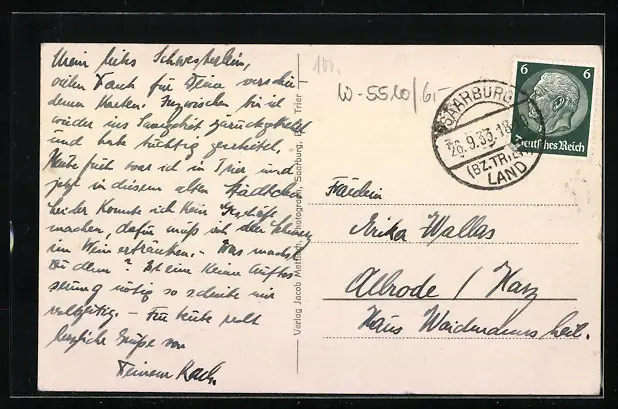 Mein liebes Schwesterlein,
vielen Dank für Deine verschie-
denen Karten. Inzwischen bin ich
wieder ins Saargebiet zurückgekehrt
und habe tüchtig gearbeitet.
Heute früh war ich in Trier und
jetzt in diesem alten Städtchen
leider konnte ich kein Geschäft
machen, dafür muß ich den Schmerz
im Wein ertränken. - Was machst
Du denn? Ist eine kleine
nötig so schreibe mir
- Für heute recht
herzliche Grüße von
Deinem
Verlag Jacob Photograph, Saarburg, Bz. Trier
100.
W-5520/6-
SAARBURG
26.9.33.18
(BZ. TRIER)
LAND
6 6
Deutsches Reich
Fräulein
Erika Wallas
Allrode / Harz
Haus Waidmanns heil.